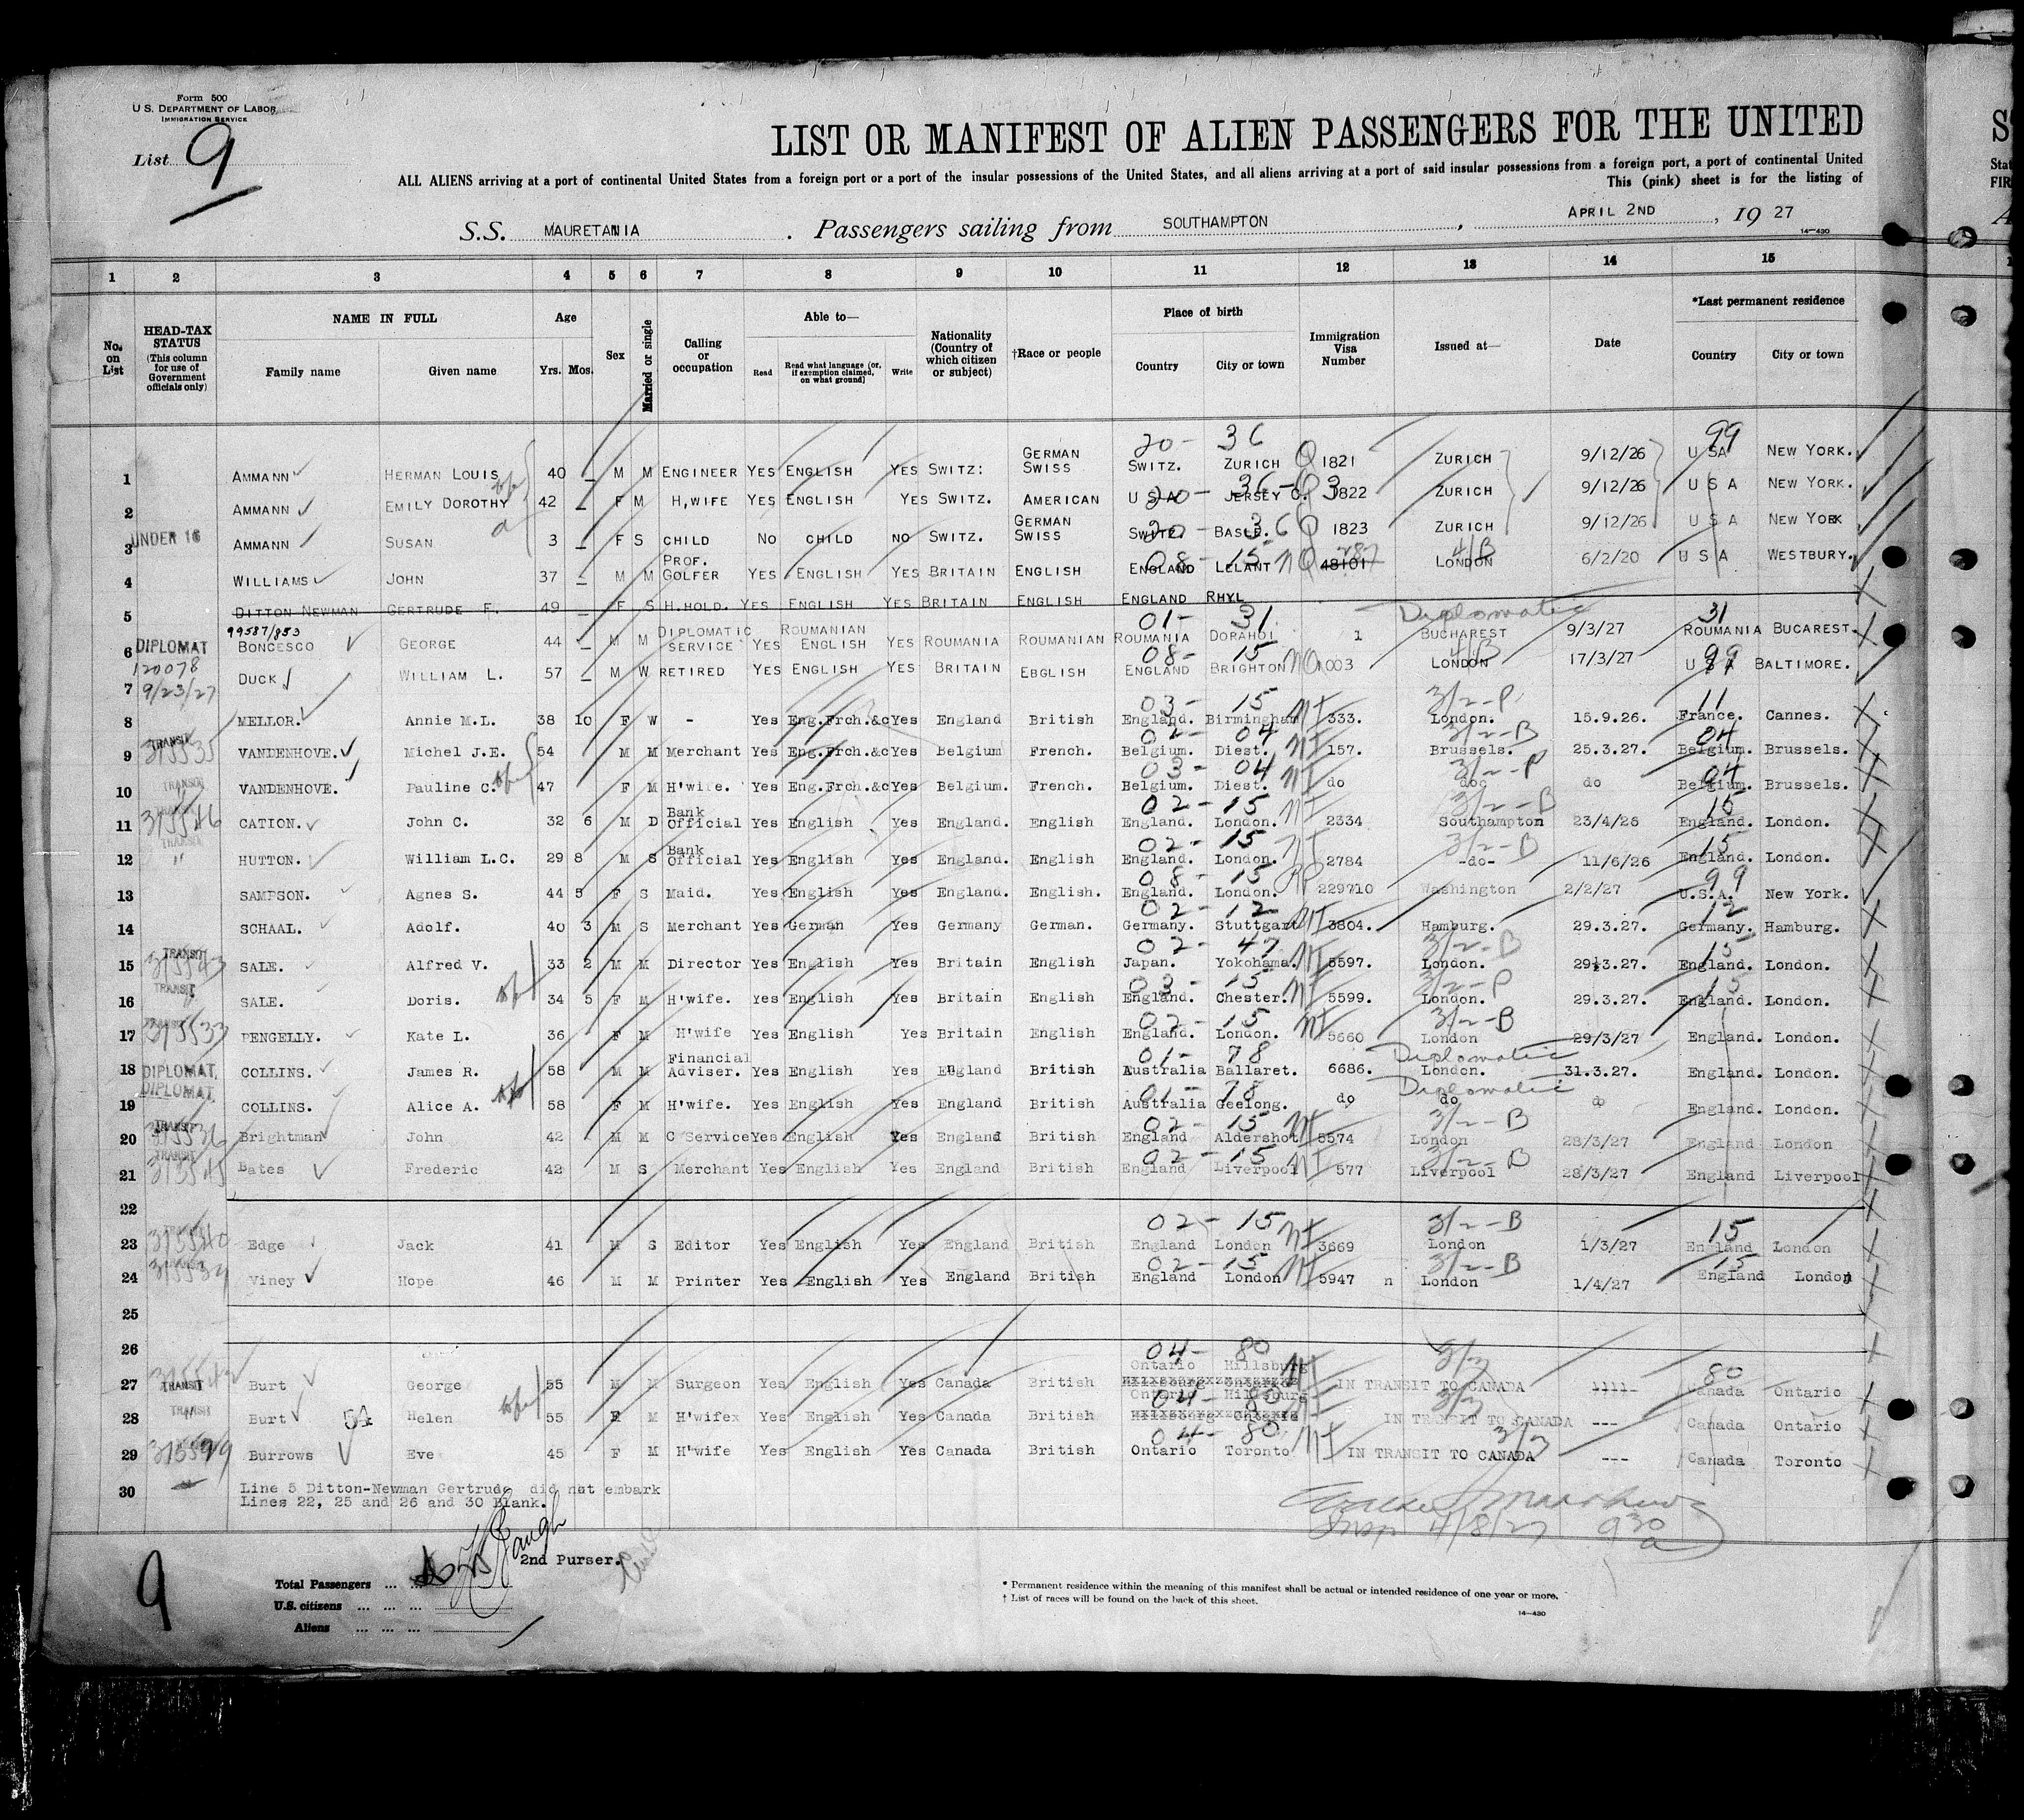 Form 500
U.S. DEPARTMENT OF LABOR
IMMIGRATION SERVICE
List 9
LIST OR MANIFEST OF ALIEN PASSENGERS FOR THE UNITED
ALL ALIENS arriving at a port of continental United States from a foreign port or a port of the insular possessions of the United States, and all aliens arriving at a port of said insular possessions from a foreign port, a port of continental United
This (pink) sheet is for the listing of
S.S. MAURETANIA. Passengers sailing from SOUTHAMPTON, APRIL 2ND, 19 27
14—430
1 2 3 4 5 6 7 8 9 10 11 12 13 14 15
No. on List
HEAD-TAX STATUS (This column for use of Government officials only)
NAME IN FULL Family name Given name
Age Yrs. Mos.
Sex
Married or single
Calling or occupation
Able to— Read Read what language (or, if exemption claimed, on what ground) Write
Nationality (Country of which citizen or subject)
†Race or people
Place of birth Country City or town
Immigration Visa Number
Issued at—
Date
*Last permanent residence Country City or town
20- 36 99
1 AMMANN HERMAN LOUIS 40 _ M M ENGINEER YES ENGLISH YES SWITZ: GERMAN SWISS SWITZ. ZURICH Q 1821 ZURICH 9/12/26 U SA NEW YORK.
2 AMMANN EMILY DOROTHY 42 _ F M H,WIFE YES ENGLISH YES SWITZ. AMERICAN U S A JERSEY C. 1822 ZURICH 9/12/26 U S A NEW YORK.
20- 36 Q
3 UNDER 16 AMMANN SUSAN 3 _ F S CHILD NO CHILD NO SWITZ. GERMAN SWISS SWITZ. BASLE. 1823 ZURICH 9/12/26 U S A NEW YORK
08- 15 NQ 4/B
4 WILLIAMS JOHN 37 _ M M PROF. GOLFER YES ENGLISH YES BRITAIN ENGLISH ENGLAND LELANT 48101 LONDON 6/2/20 U S A WESTBURY.
5 DITTON NEWMAN GERTRUDE F. 49 _ F S H.HOLD. YES ENGLISH YES BRITAIN ENGLISH ENGLAND RHYL
99587/853 01- 31 Diplomatic 31
6 DIPLOMAT BONCESCO GEORGE 44 _ M M DIPLOMATIC SERVICE YES ROUMANIAN ENGLISH YES ROUMANIA ROUMANIAN ROUMANIA DORAHOI 1 BUCHAREST 9/3/27 ROUMANIA BUCAREST.
120078 08- 15 NQ 4/B 99
7 9/23/27 DUCK WILLIAM L. 57 _ M W RETIRED YES ENGLISH YES BRITAIN EBGLISH ENGLAND BRIGHTON 1003 LONDON 17/3/27 U S A BALTIMORE.
03- 15 NI 3/2-P 11
8 MELLOR. Annie M.L. 38 10 F W - Yes Eng.Frch.&c Yes England British England. Birmingham 333. London. 15.9.26. France. Cannes.
02- 04 NI 3/2-B 04
9 TRANSIT 315535 VANDENHOVE. Michel J.E. 54 M M Merchant Yes Eng.Frch.&c Yes Belgium French. Belgium. Diest. 157. Brussels. 25.3.27. Belgium. Brussels.
03- 04 NI 3/2-P 04
10 TRANSIT VANDENHOVE. Pauline C. 47 F M H'wife. Yes Eng.Frch.&c Yes Belgium. French. Belgium. Diest. do do do Belgium. Brussels.
02- 15 NI 3/2-B 15
11 315546 CATION. John C. 32 6 M D Bank Official Yes English Yes England. English England. London. 2334 Southampton 23/4/26 England. London.
02- 15 NI 3/2-B 15
12 TRANSIT " HUTTON. William L.C. 29 8 M S Bank Official Yes English Yes England. English England. London. 2784 -do- 11/6/26 England. London.
08- 15 RP 99
13 SAMPSON. Agnes S. 44 5 F S Maid. Yes English Yes England. English. England. London. 229710 Washington 2/2/27 U.S.A. New York.
02- 12 NI 12
14 SCHAAL. Adolf. 40 3 M S Merchant Yes German Yes Germany German. Germany. Stuttgart 3804. Hamburg. 29.3.27. Germany. Hamburg.
02- 47 NI 3/2-B 15
15 TRANSIT 315543 SALE. Alfred V. 33 2 M M Director Yes English Yes Britain English Japan. Yokohama. 5597. London. 29.3.27. England. London.
03- 15 NI 3/2-P 15
16 TRANSIT SALE. Doris. 34 5 F M H'wife. Yes English Yes Britain English England. Chester. 5599. London. 29.3.27. England. London.
02- 15 NI 3/2-B
17 315533 PENGELLY. Kate L. 36 F M H'wife Yes English Yes Britain English England. London. 5660 London 29/3/27 England. London.
01- 78 Diplomatic
18 DIPLOMAT. COLLINS. James R. 58 M M Financial Adviser. Yes English Yes England British Australia Ballaret. 6686. London. 31.3.27. England. London.
01- 78 Diplomatic
19 DIPLOMAT. COLLINS. Alice A. 58 F M H'wife. Yes English Yes England British Australia Geelong. do do do England. London.
02- 15 NI 3/2-B
20 TRANSIT 315536 Brightman John 42 M M C Service Yes English Yes England British England Aldershot 5574 London 28/3/27 England London
02- 15 NI 3/2-B
21 TRANSIT 315545 Bates Frederic 42 M S Merchant Yes English Yes England British England Liverpool 577 Liverpool 28/3/27 England Liverpool
22
02- 15 NI 3/2-B 15
23 315540 Edge Jack 41 M S Editor Yes English Yes England British England London 3669 London 1/3/27 England London
02- 15 NI 3/2-B 15
24 315539 Viney Hope 46 M M Printer Yes English Yes England British England London 5947 n London 1/4/27 England London
25
26
04- 80 3/3 80
27 TRANSIT Burt George 55 M M Surgeon Yes English Yes Canada British Ontario Hillsburg IN TRANSIT TO CANADA Canada Ontario
04- 80 NI 3/3
28 TRANSIT Burt 54 Helen 55 F M H'wifex Yes English Yes Canada British Ontario Hillsburg IN TRANSIT TO CANADA --- Canada Ontario
04- 80 NI 3/3
29 Burrows Eve 45 F M H'wife Yes English Yes Canada British Ontario Toronto IN TRANSIT TO CANADA --- Canada Toronto
30 Line 5 Ditton-Newman Gertrude did not embark
Lines 22, 25 and 26 and 30 Blank.
Insp 4/8/27 930 a
2nd Purser.
9
Total Passengers ... ...
U.S. citizens ... ... ...
Aliens ... ... ...
* Permanent residence within the meaning of this manifest shall be actual or intended residence of one year or more.
† List of races will be found on the back of this sheet.
14—430